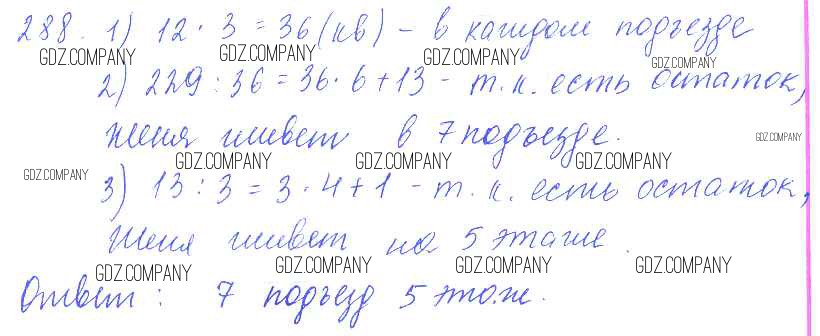 288. 1) 12 · 3 = 36 (кв) - в каждом подъезде
GDZ.COMPANY GDZ.COMPANY GDZ.COMPANY GDZ.COMPANY
2) 229 : 36 = 36 · 6 + 13 - т. к. есть остаток,
Женя живет в 7 подъезде.
GDZ.COMPANY
GDZ.COMPANY GDZ.COMPANY GDZ.COMPANY GDZ.COMPANY
3) 13 : 3 = 3 · 4 + 1 - т. к. есть остаток,
Женя живет на 5 этаже.
GDZ.COMPANY GDZ.COMPANY GDZ.COMPANY GDZ.COMPANY
Ответ: 7 подъезд 5 этаж.